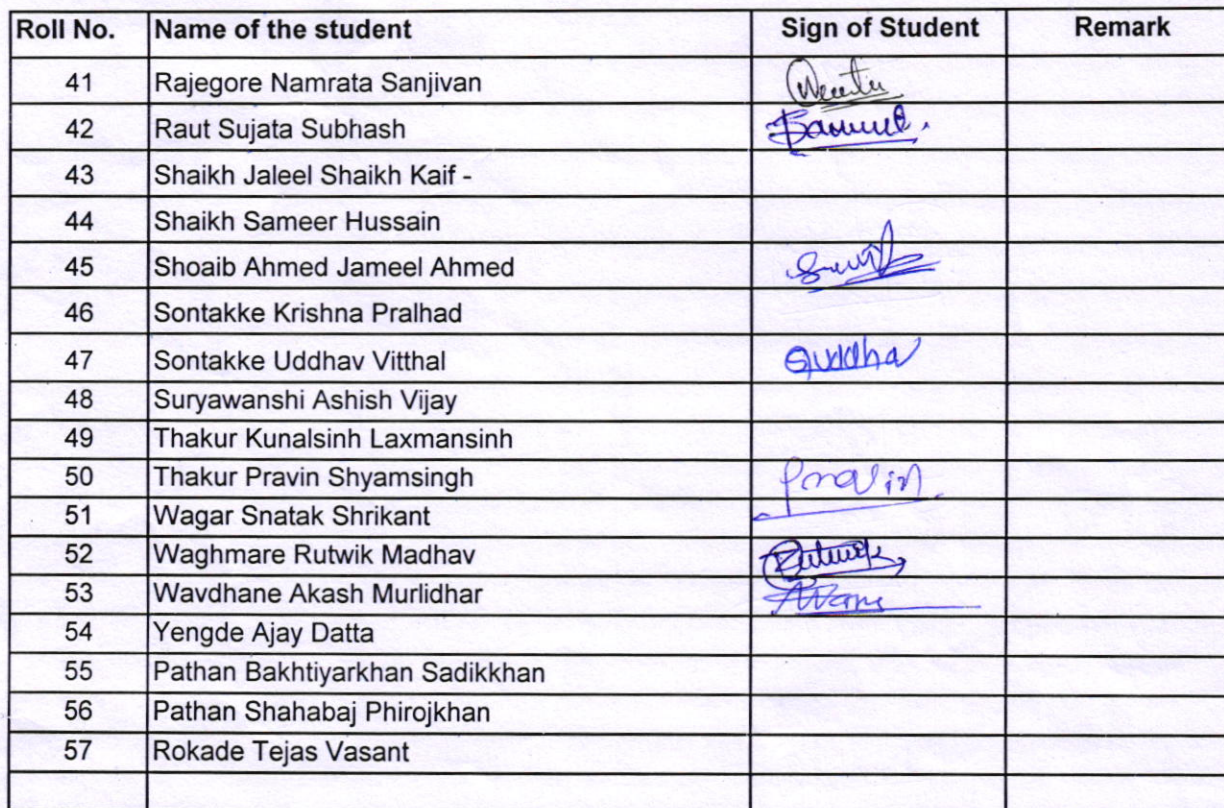 Roll No. Name of the student Sign of Student Remark
41 Rajegore Namrata Sanjivan
42 Raut Sujata Subhash
43 Shaikh Jaleel Shaikh Kaif -
44 Shaikh Sameer Hussain
45 Shoaib Ahmed Jameel Ahmed
46 Sontakke Krishna Pralhad
47 Sontakke Uddhav Vitthal
48 Suryawanshi Ashish Vijay
49 Thakur Kunalsinh Laxmansinh
50 Thakur Pravin Shyamsingh Pravin
51 Wagar Snatak Shrikant
52 Waghmare Rutwik Madhav
53 Wavdhane Akash Murlidhar
54 Yengde Ajay Datta
55 Pathan Bakhtiyarkhan Sadikkhan
56 Pathan Shahabaj Phirojkhan
57 Rokade Tejas Vasant